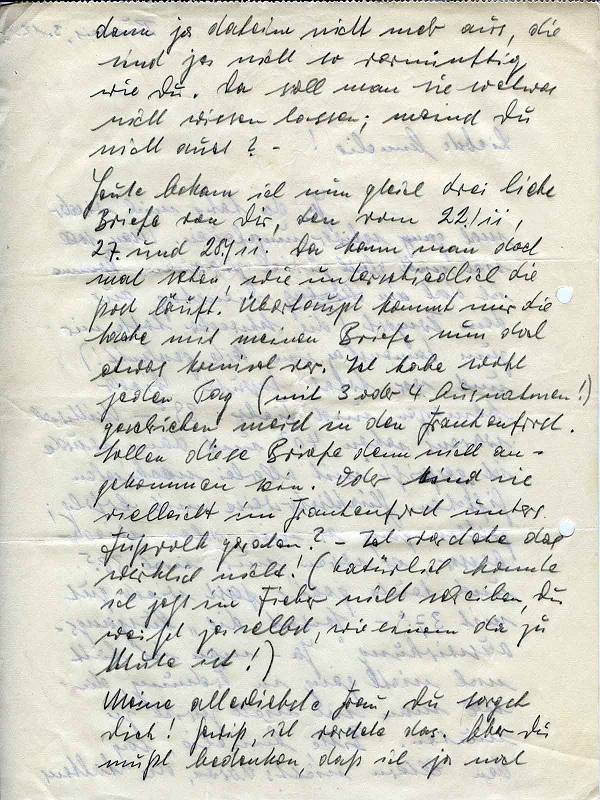 denn ja daheim nicht mehr aus, die
sind ja nicht so vernünftig
wie Du. Da soll man sie sowas
nicht wissen lassen; meinst Du
nicht auch? -
Heute bekam ich nun gleich drei liebe
Briefe von Dir, den vom 22./11,
27. und 28./11. Da kann man doch
mal sehen, wie unterschiedlich die
Post läuft. Überhaupt kommt mir die
Sache mit meinen Briefe nun doch
etwas komisch vor. Ich habe wohl
jeden Tag (mit 3 oder 4 Ausnahmen!)
geschrieben meist in den Frankenforst.
Sollen diese Briefe denn nicht an-
gekommen sein. Oder sind sie
vielleicht im Frankenforst unters
Fußvolk geraten? - Ich verstehe das
wirklich nicht! (Natürlich konnte
ich jetzt im Fieber nicht schreiben, Du
weißt ja selbst, wie einem da zu
Mute ist!)
Meine allerliebste Frau, Du sorgst
Dich! Gewiß, ich verstehe das. Aber Du
mußt bedenken, daß ich ja noch